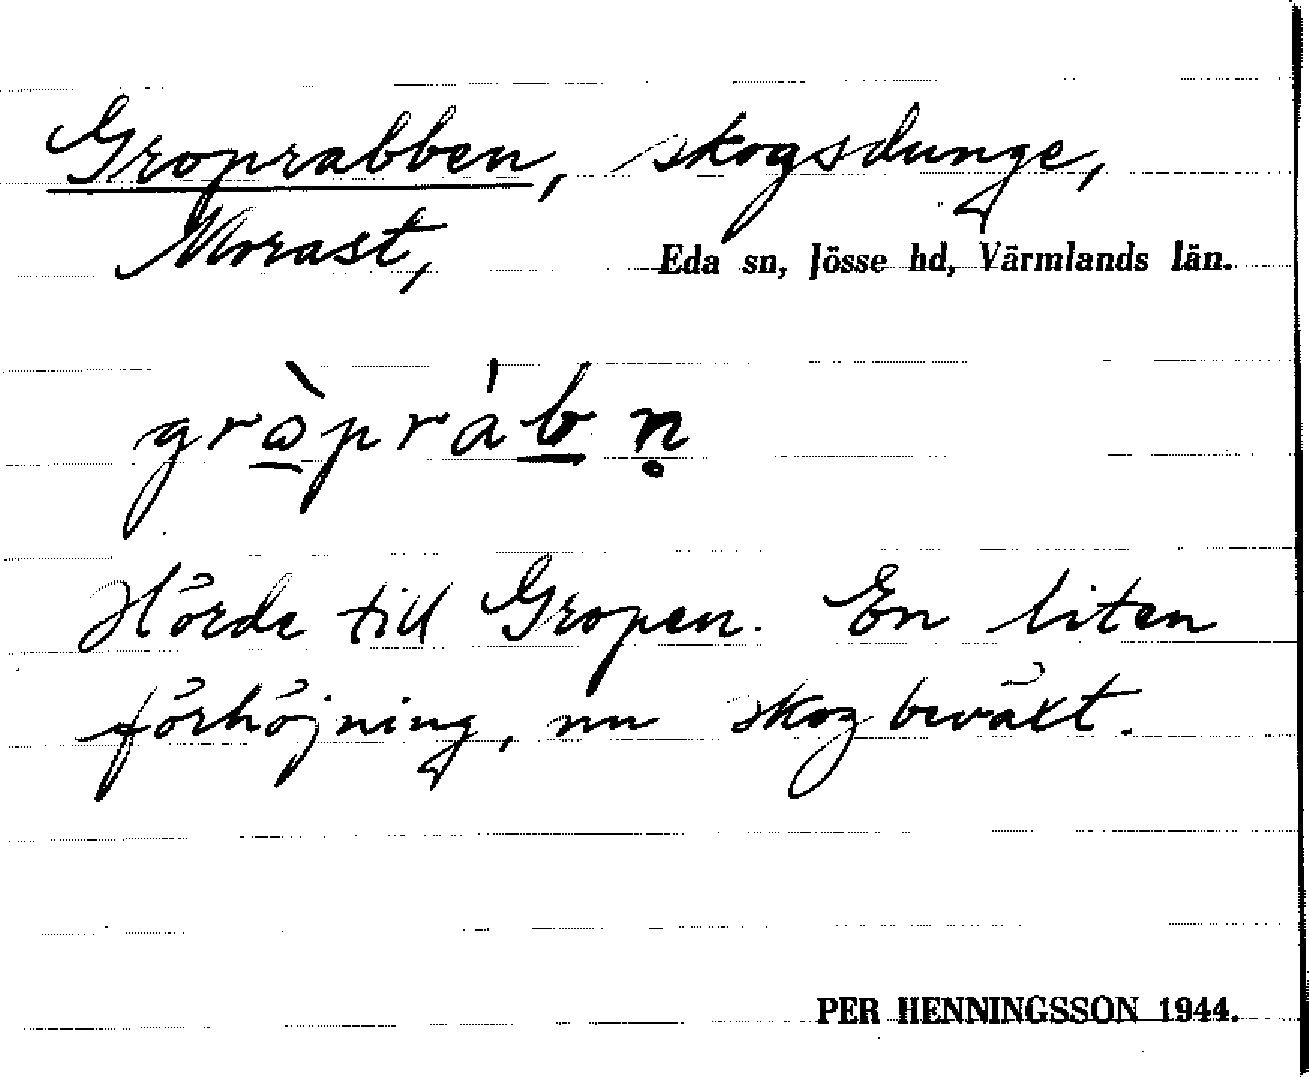 Groprabben, skogsdunge,
Morast, Eda sn, Jösse hd, Värmlands län.
grò̱práḇ ṇ
Hörde till Gropen. En liten
förhöjning, nu skogbeväxt.
PER HENNINGSSON 1944.